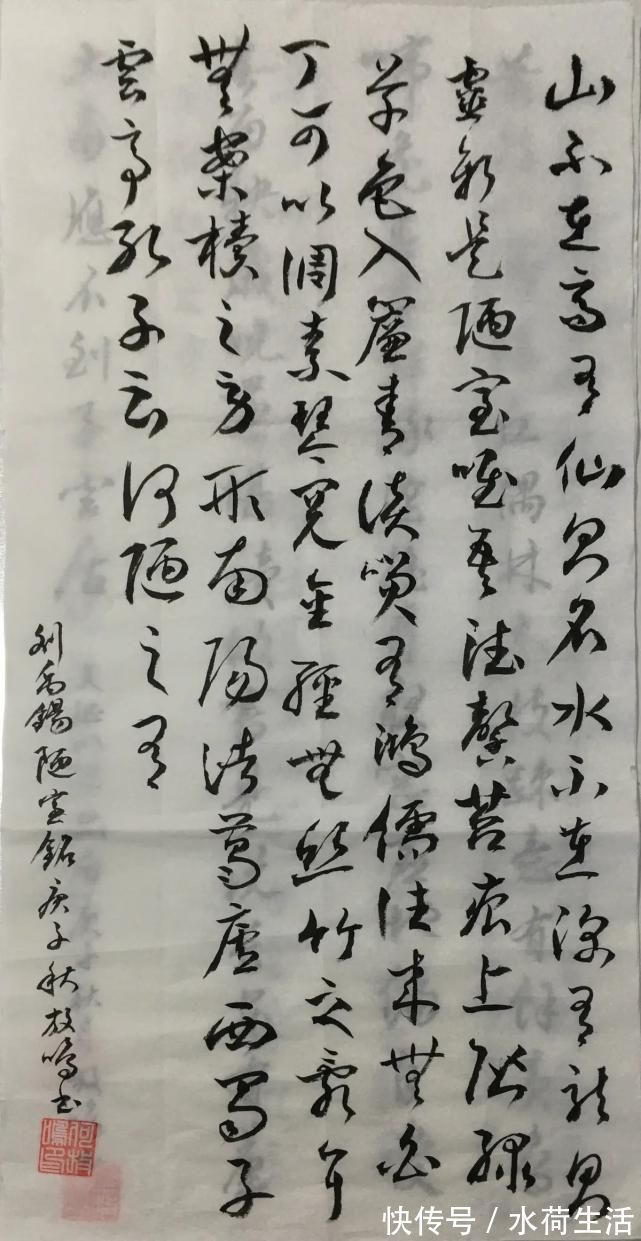 山不在高有仙則名水不在深有龍則
靈斯是陋室唯吾德馨苔痕上階緑
草色入簾青談笑有鴻儒往来無白
丁可以調素琴閲金經無絲竹之亂耳
無案牘之勞形南陽諸葛廬西蜀子
雲亭孔子云何陋之有
刘禹錫陋室銘庚子秋放鳴书
快传号／水荷生活